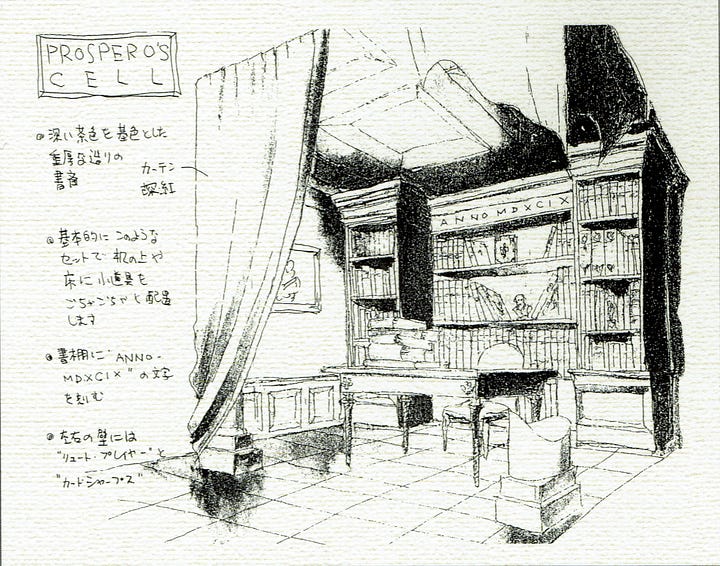 PROSPERO'S
CELL
深い茶色を基色とした
重厚な造りの
書斎
カーテン
深紅
基本的に このような
セットで 机の上や
床に小道具を
ごちゃごちゃと配置
します
書棚に"ANNO-
MDXCIX"の文字
を刻む
左右の壁には
"リュート・プレイヤー"と
"カードシャープス"
ANNO MDXCIX